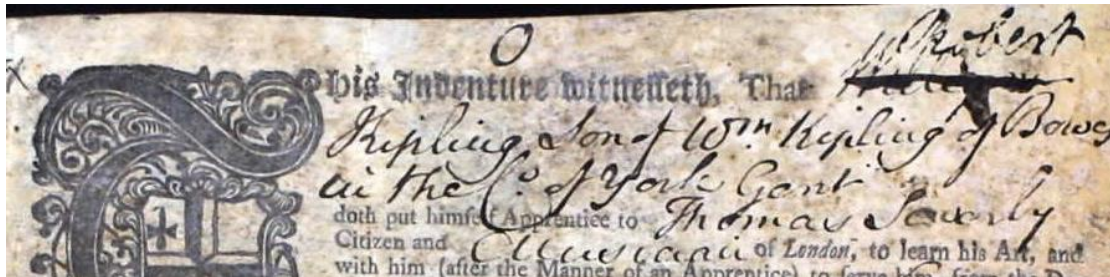 O
Robert
This Indenture witnesseth, That
Kipling Son of Wm. Kipling of Bowes
in the Co. of York Gent
doth put himself Apprentice to Thomas
Citizen and Musician of London, to learn his Art, and
with him (after the Manner of an Apprentice) to serve